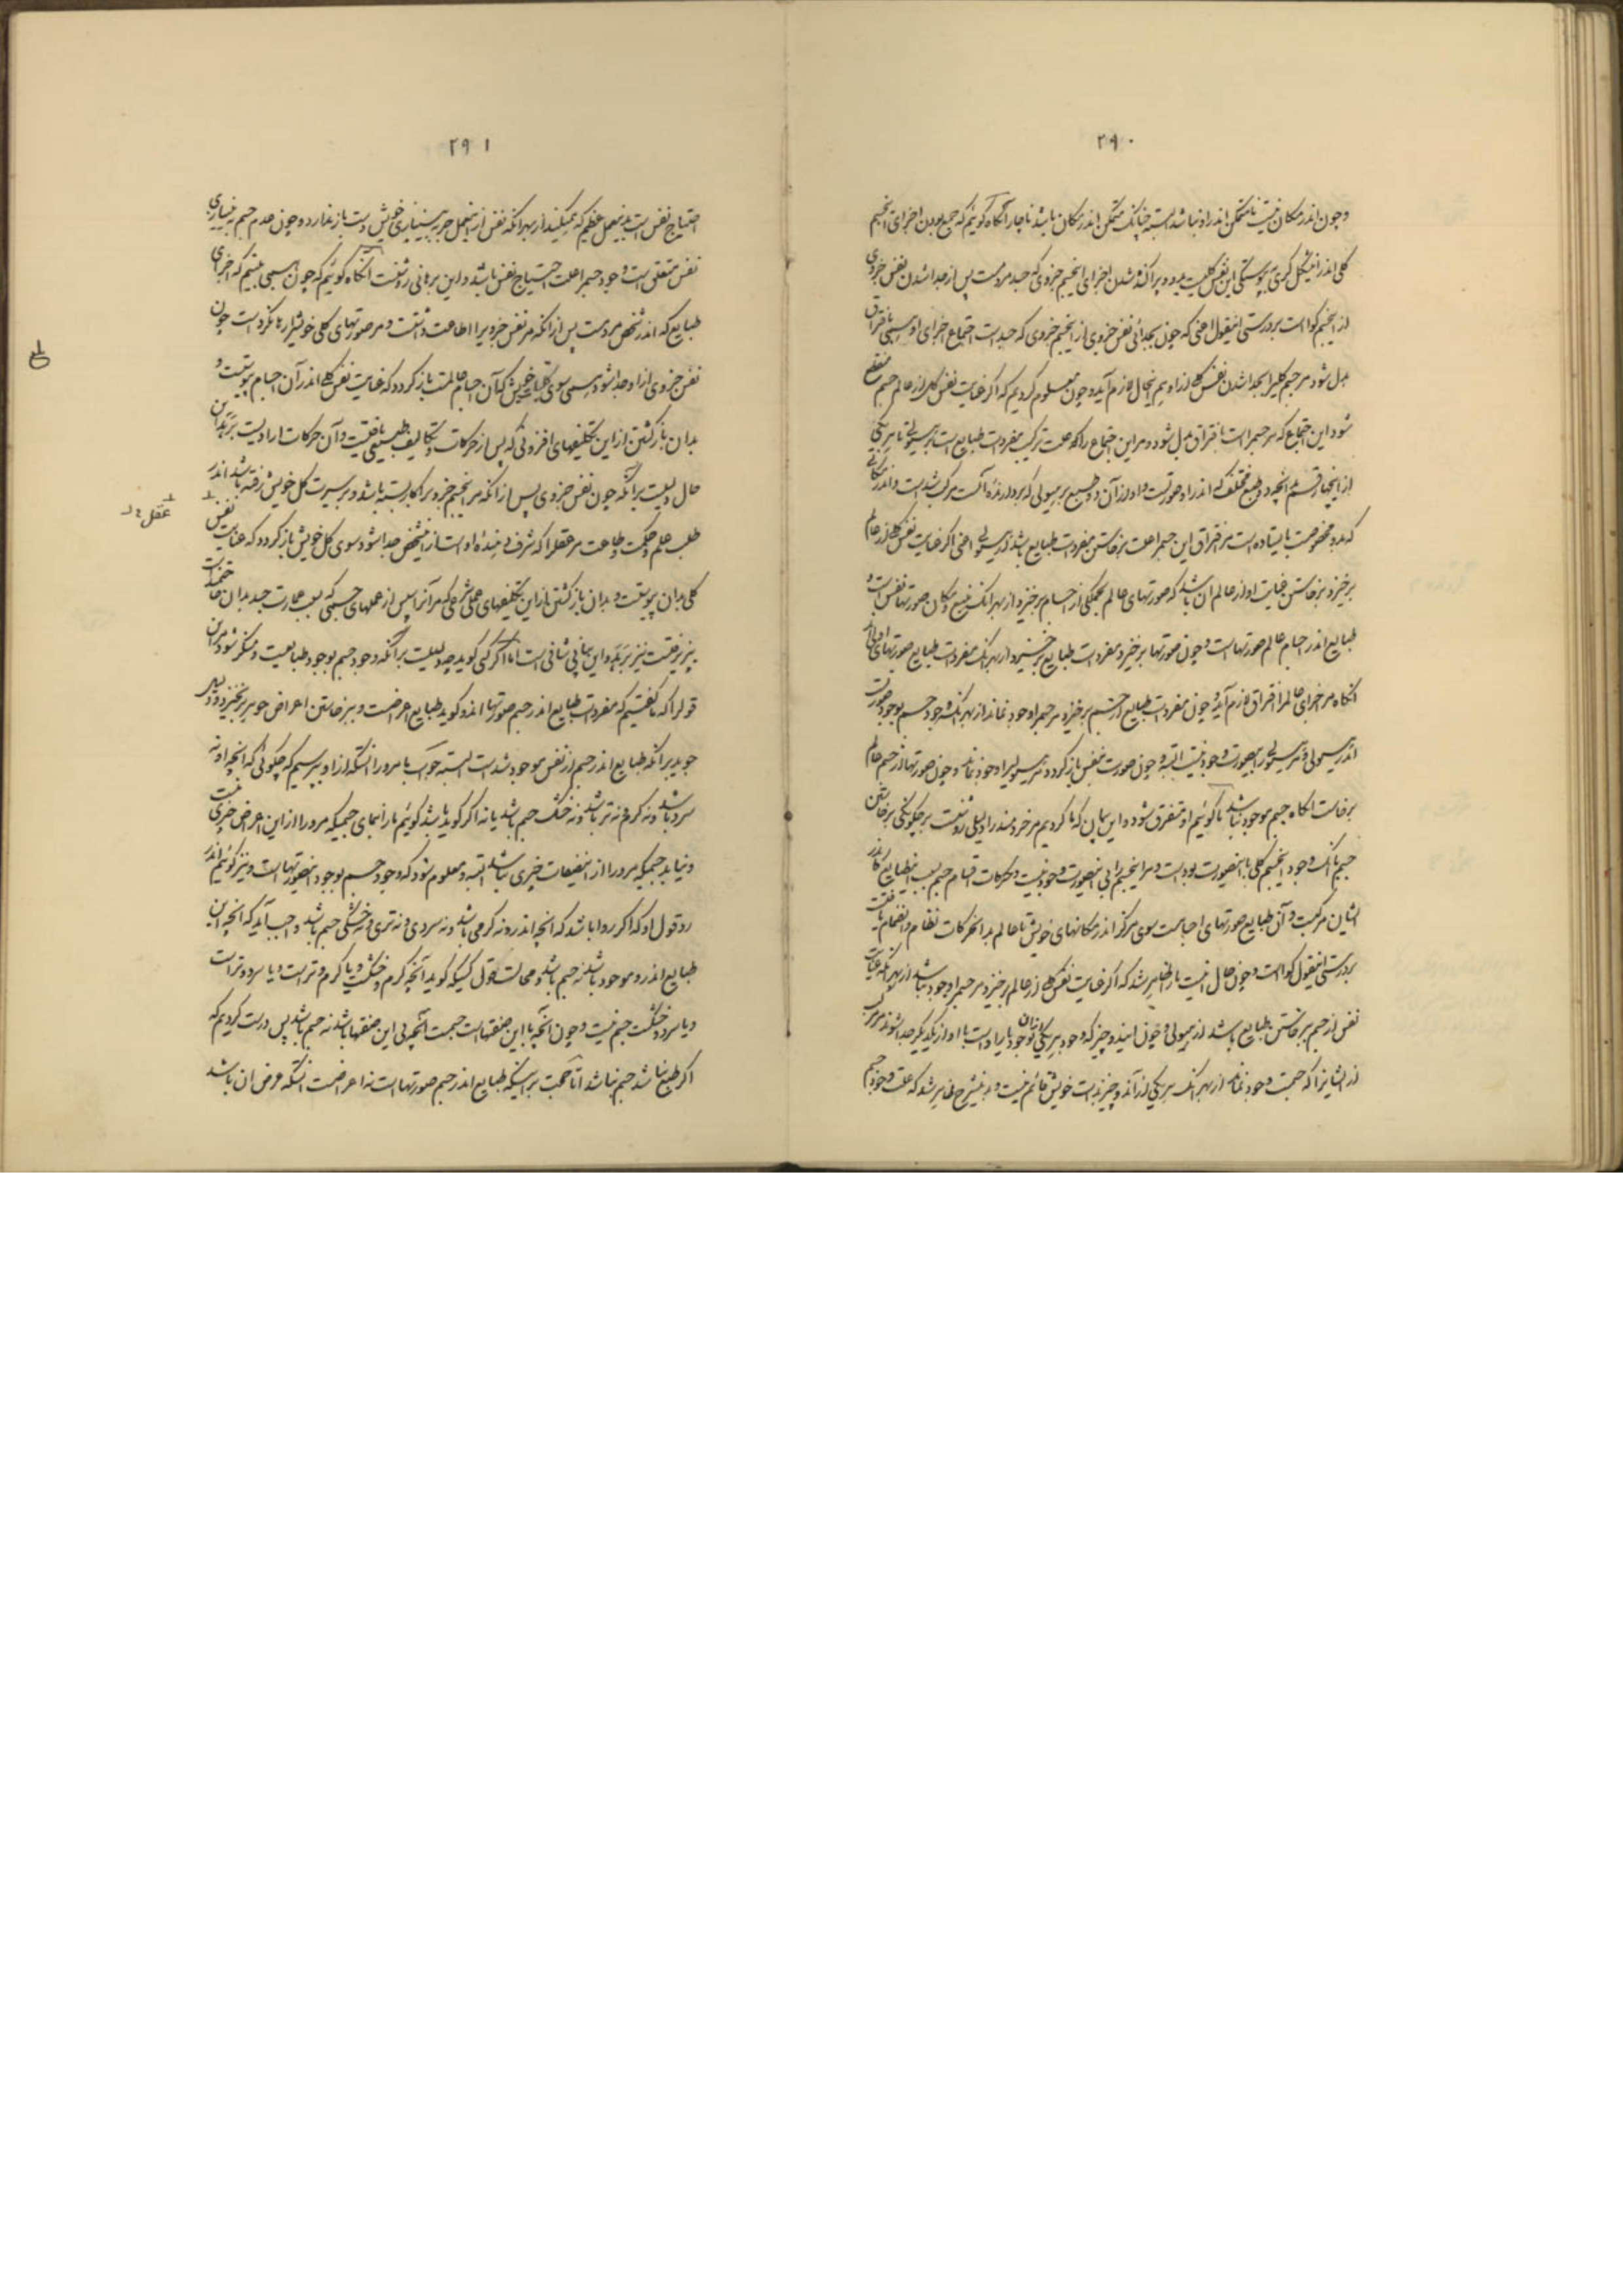 ۲۹۰
و چون اندر مکان نیست تا متمکن اندر او نباشد البته چنانک متمکن اندر مکان باشد ناچار آنگاه گوئیم که جمع بودن اجزای این جسم
کلی اندر این شکل کری به پیوستگی این نفس کلیست بدو و پراکنده شدن اجزای این جسم جزوی که جسد مردمست پس از جدا شدن نفس جزوی
از این جسم گواست بر درستی این قول اعنی که چون بجدائی نفس جزوی از این جسم جزوی که جسد است اجتماع اجزای او همی بافتراق
بدل شود مر جسم کلیرا بجدا شدن نفس کلی از او هم این حال لازم آید و چون معلوم کردیم که اگر عنایت نفس کلی از عالم جسم منقطع
شود این اجتماع که مر جسم راست بافتراق بدل شود و مر این اجتماع را که علت ترکیب مفردات طبایع است بر هیولی تا هر یکی
از این چهار قسم آنچه دو طبع مختلف که اندر او صورتست و او از آن دو طبع بر هیولی که بردارنده آنست مرکب شده است و اندر مکانی
که بدو مخصوصست بایستاده است مر افتراق این جسم را علت برخاستن مفردات طبایع باشد از هیولی اعنی اگر عنایت نفس کلی از عالم
برخیزد برخاستن عنایت او از عالم آن باشد که صورتهای عالم بجملگی از اجسام برخیزد از بهر آنک منبع و مکان صورتها نفس است و
طبایع اندر اجسام عالم صورتهاست و چون صورتها برخیزد مفردات طبایع برخیزد از بهر آنک مفردات طبایع صورتهای اولی‌اند
آنگاه مر اجزای عالم را افتراق لازم آید و چون مفردات طبایع از جسم برخیزد مر جسم را وجود نماند از بهر آنک وجود جسم بوجود صورت
اندر هیولی و مر هیولی را بی صورت وجود نیست البته و چون صورت بنفس باز گردد مر هیولی را وجود نماند و چون صورتها از جسم عالم
برخاست آنگاه جسم موجود نباشد تا گوئیم او متفرق شود و این بیان که ما کردیم مر خردمند را دلیلی روشنست بر چگونگی برخاستن
جسم بانک وجود این جسم کلی با این صورت بوده است و مر این جسم را بی این صورت وجود نیست و حرکات اقسام جسم بسبب این طبایع کاندر
ایشان مرکبست و آن طبایع صورتهای اجسامست سوی مرکز اندر مکانهای خویش تا عالم بدان حرکات نظام و انضمام یافتست
بر درستی این قول گواست و چون حال اینست ما را ظاهر شد که اگر عنایت نفس کلی از عالم برخیزد مر جسم را وجود نباشد از بهر آنکه عنایت
نفس از جسم برخاستن طبایع باشد از هیولی و چون این دو چیز که وجود هر یکی از آن بوجود یار اوست با او از یکدیگر جدا شوند مر هر یکی
از ایشانرا که جسمست وجود نماند از بهر آنک هر یکی از آن دو چیز بذات خویش قائم نیست و بدین شرح ظاهر شد که علت وجود جسم
۲۹۱
احتیاج نفس است بدین عمل عظیم که همی‌کند از بهر آنکه نفس از این عمل جز به بی‌نیازی خویش دست باز ندارد و چون عدم جسم به بی‌نیازی
نفس متعلق است وجود جسم را علت احتیاج نفس باشد و این برهانی روشنست آنگاه گوئیم که چون همی بینیم که اجزای
طبایع که اندر شخص مردمست پس از آنکه مر نفس جزوی را اطاعت داشتست و مر صورتهای کلی خویش را رها کردست چون
نفس جزوی از او جدا شود همی سوی کلیات خویش کان اجسام عالمست باز گردد که عنایت نفس کلی اندر آن اجسام پیوستست و
بدان بازگشتن از این تکلیفهای افزونی که پس از حرکات و تکالیف طبیعی یافتست و آن حرکات ارادیست برهد این
حال دلیلست بر آنکه چون نفس جزوی پس از آنکه مر این جسم جزوی را کار بسته باشد و بر سیرت کل خویش رفته باشد اندر
طلب علم و حکمت و طاعت مر عقل را که شرف دهنده اوست از این شخص جدا شود سوی کل خویش باز گردد که عنایت نفس
عقل
کلی بدان پیوستست و بدان بازگشتن از این تکلیفهای عملی شرعی که مر آنرا پس از عملهای حسی که بسبب عمارت جسد بدان حاجتمندست
پذیرفتست نیز برهد و این بیانی شافی است اما اگر کسی گوید چه دلیلست بر آنکه وجود جسم بوجود طبایعست و منکر شود مر این
قول را که ما گفتیم که مفردات طبایع اندر جسم صورتها اند و گوید طبایع اعراضست و برخاستن اعراض جوهر برنخیزد و دلیل
جوید بر آنکه طبایع اندر جسم از نفس موجود شدست البته جواب ما مرو را آنستکه از او بپرسیم که چگوئی که آنچه او نه
سرد باشد و نه گرم و نه تر باشد و نه خشک جسم باشد یا نه اگر گوید باشد گوئیم ما را بنمای جسمیکه مرو را از این اعراض چیزی نیست
و نیابد جسمیکه مرو را از این طبعات چیزی نباشد البته و معلوم شود که وجود جسم بوجود این صورتهاست و نیز گوئیم اندر
رد قول او که اگر روا باشد که آنچه اندر و نه گرمی باشد و نه سردی و نه تری و نه خشکی جسم باشد واجب آید که آنچه این
طبایع اندرو موجود باشد نه جسم باشد و محالست قول کسیکه گوید آنچه گرم و خشکست و یا گرم و تر است و یا سرد و تر است
و یا سرد و خشکست جسم نیست و چون آنچه با این صفتهاست جسمست آنچه بی این صفتها باشد نه جسم باشد پس درست کردیم که
اگر طبع نباشد جسم نباشد اما حجت بر اینکه طبایع اندر جسم صورتهاست نه اعراضست آنستکه عرض آن باشد